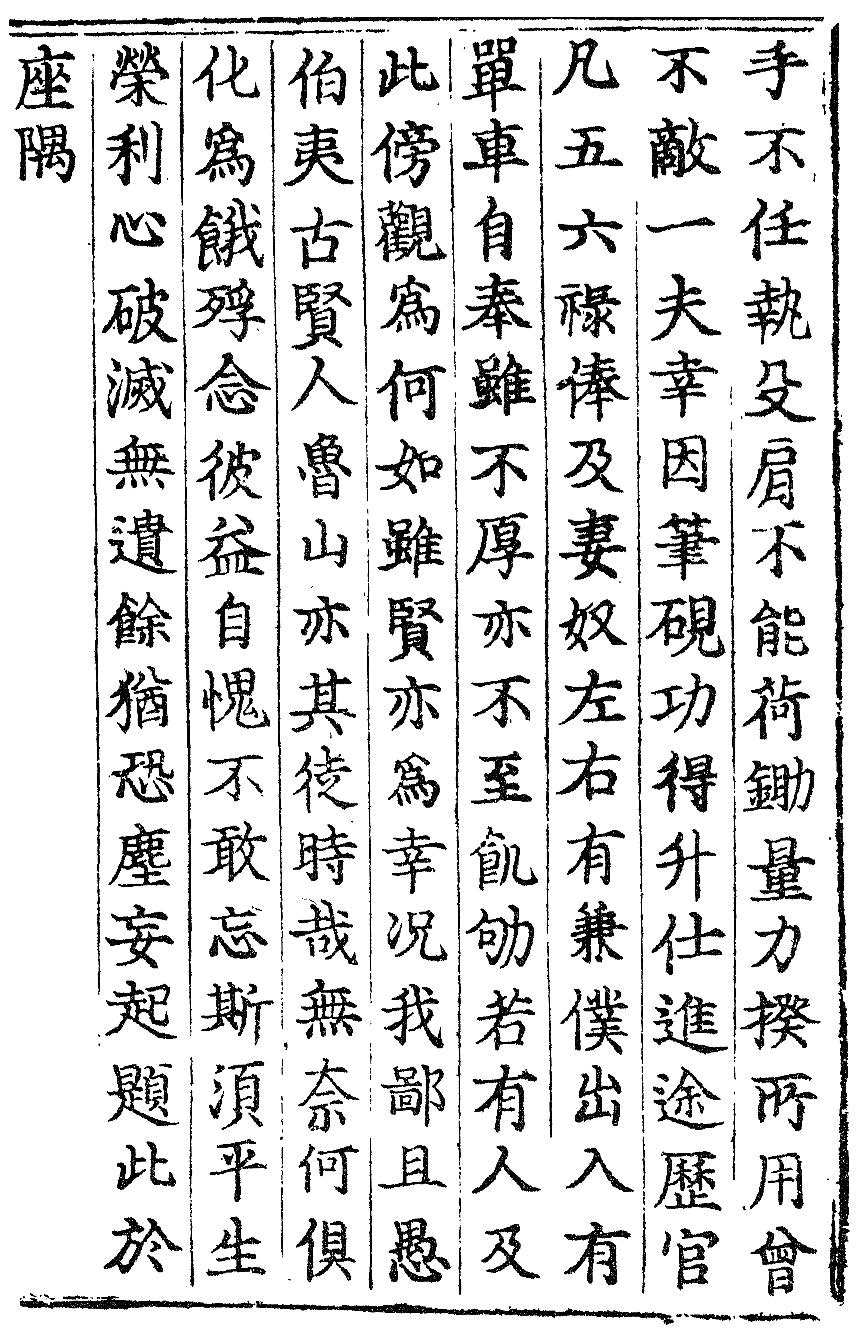 手不任執殳肩不能荷鋤量力揆所用曾
不敵一夫幸因筆硯功得升仕進途歷官
凡五六祿俸及妻奴左右有兼僕出入有
單車自奉雖不厚亦不至飢劬若有人及
此傍觀爲何如雖賢亦爲幸况我鄙且愚
伯夷古賢人魯山亦其徒時哉無奈何俱
化爲餓殍念彼益自愧不敢忘斯須平生
榮利心破滅無遺餘猶恐塵妄起題此於
座隅